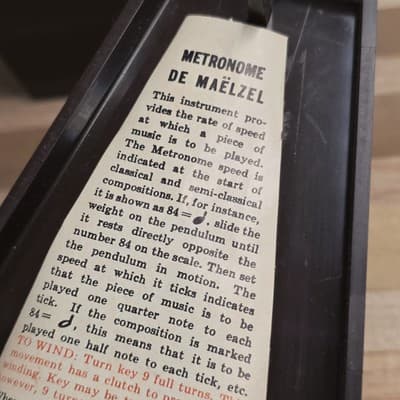 METRONOME
DE MAËLZEL
This instrument pro-
vides the rate of speed
at which a piece of
music is to be played.
The Metronome speed is
indicated at the start of
classical and semi-classical
compositions. If, for instance,
it is shown as 84=♩. slide the
weight on the pendulum until
it rests directly opposite the
number 84 on the scale. Then set
the pendulum in motion. The
speed at which it ticks indicates
that the piece of music is to be
played one quarter note to each
tick. If the composition is marked
84=𝅗𝅥, this means that it is to be
played one half note to each tick, etc.
TO WIND: Turn key 9 full turns.
movement has a clutch to
winding. Key may be
however, 9 turns